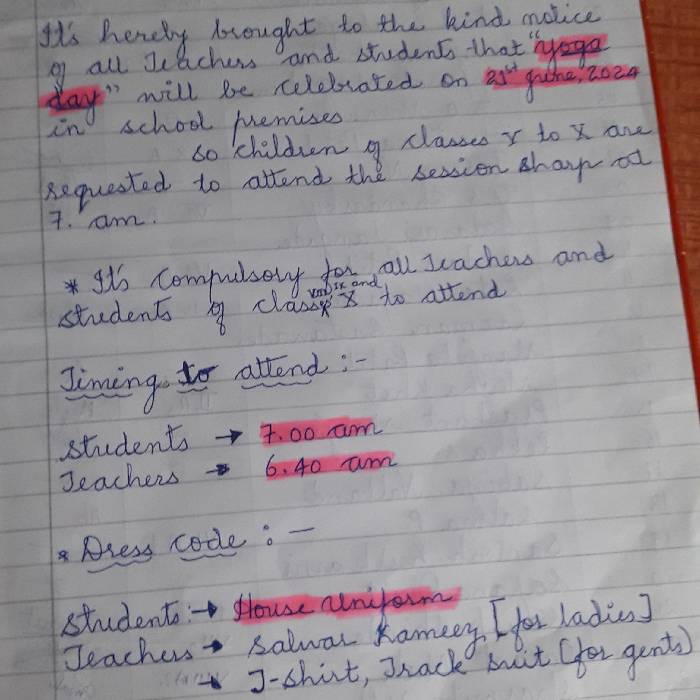 It's hereby brought to the kind notice
of all Teachers and students that "yoga
day" will be celebrated on 21st June, 2024
in school premises
so children of classes V to X are
requested to attend the session sharp at
7. am.
* It's compulsory for all Teachers and
VIII IX and
students of class X to attend
Timing to attend :-
Students → 7.00 am
Teachers → 6.40 am
* Dress code : -
Students :→ House Uniform
Teachers → Salwar Kameez [for ladies]
→ T-shirt, Track suit (for gents)